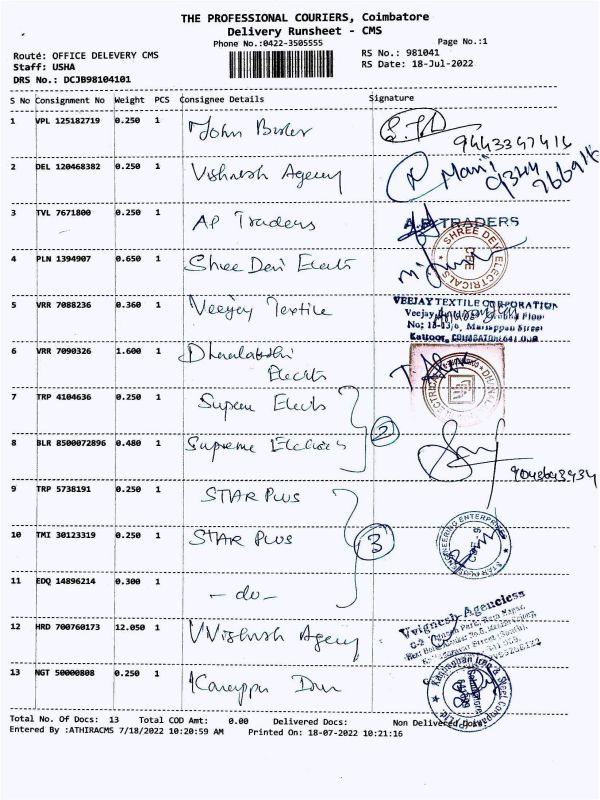 THE PROFESSIONAL COURIERS, Coimbatore
Delivery Runsheet - CMS
Phone No.:0422-3505555
Page No.:1
Route: OFFICE DELEVERY CMS
RS No.: 981041
Staff: USHA
RS Date: 18-Jul-2022
DRS No.: DCJB98104101
S No Consignment No Weight PCS Consignee Details Signature
1 VPL 125182719 0.250 1 John
9443347416
2 DEL 120468382 0.250 1 Vishnesh Agency Mani
3 TVL 7671800 0.250 1 AP Traders A.P. TRADERS
4 PLN 1394907 0.650 1 Shree Devi Elects SHREE DEVI ELECTRICALS CBE
5 VRR 7088236 0.360 1 Veejay Textile VEEJAY TEXTILE CORPORATION
Mariappan Street
Kattoor, COIMBATORE
6 VRR 7090326 1.600 1 Dhanalakshi
Elects
7 TRP 4104636 0.250 1 Suprem Elects
2
8 BLR 8500072896 0.480 1 Supreme
9 TRP 5738191 0.250 1 STAR PLUS
10 TMI 30123319 0.250 1 STAR PLUS 3
11 EDQ 14896214 0.300 1 - do -
12 HRD 700760173 12.050 1 Agency Vvignesh Agencless
13 NGT 50000808 0.250 1
Total No. Of Docs: 13 Total COD Amt: 0.00 Delivered Docs: Non Delivered Docs:
Entered By :ATHIRACMS 7/18/2022 10:20:59 AM Printed On: 18-07-2022 10:21:16